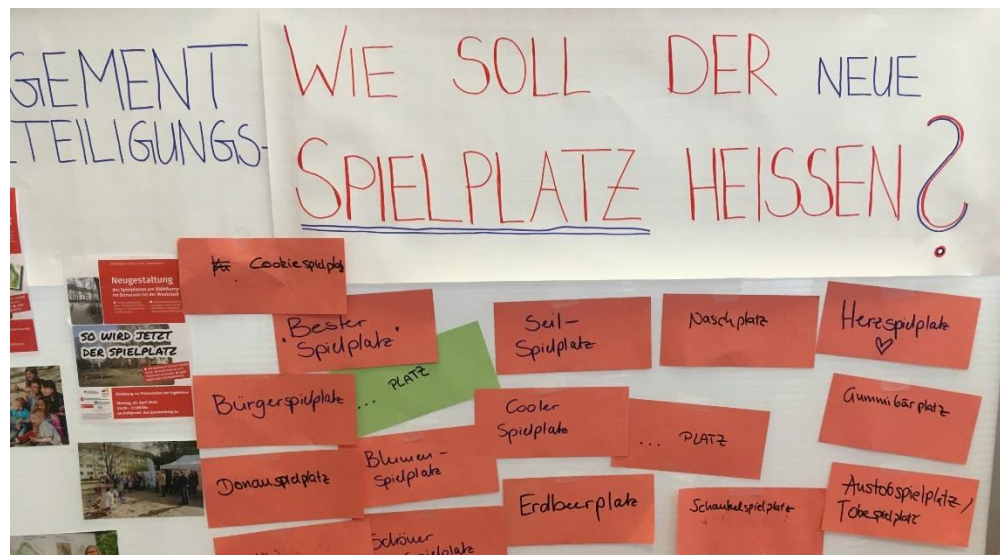 GEMENT
TEILIGUNGS-
WIE SOLL DER NEUE
SPIELPLATZ HEISSEN?
Neugestaltung
SO WIRD JETZT
DER SPIELPLATZ
Cookiespielplatz
"Bester
Spielplatz"
Seil-
Spielplatz
Naschplatz
Herzspielplatz
♡
... PLATZ
Bürgerspielplatz
Cooler
Spielplatz
... PLATZ
Gummibärplatz
Donauspielplatz
Blumen-
Spielplatz
Erdbeerplatz
Schaukelspielplatz
Austobspielplatz/
Tobespielplatz
Schöner
Spielplatz